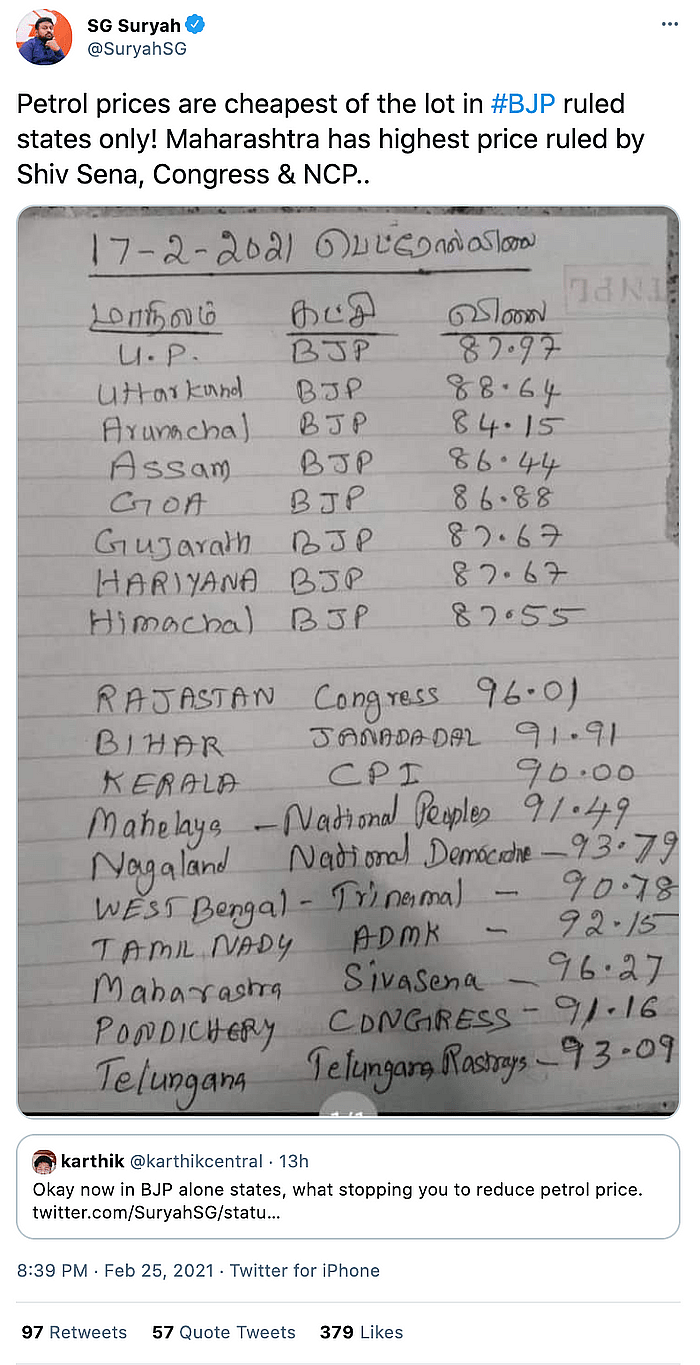 SG Suryah
@SuryahSG
Petrol prices are cheapest of the lot in #BJP ruled
states only! Maharashtra has highest price ruled by
Shiv Sena, Congress & NCP..
17-2-2021 பெட்ரோல்விலை
மாநிலம் கட்சி விலை
U.P. BJP 87.97
Uttarkand BJP 88.64
Arunachal BJP 84.15
Assam BJP 86.44
GOA BJP 86.88
Gujarath BJP 87.67
HARIYANA BJP 87.67
Himachal BJP 87.55
RAJASTAN Congress 96.01
BIHAR JANADADAL 91.91
KERALA CPI 90.00
Mahelaya - National Peoples 91.49
Nagaland National Democratie - 93.79
WEST Bengal - Trinamal - 90.78
TAMIL NADY ADMK - 92.15
Maharastra SivaSena - 96.27
PONDICHERY CONGRESS - 91.16
Telungana Telungana Rastrays - 93.09
1/1
karthik @karthikcentral · 13h
Okay now in BJP alone states, what stopping you to reduce petrol price.
twitter.com/SuryahSG/statu...
8:39 PM · Feb 25, 2021 · Twitter for iPhone
97 Retweets 57 Quote Tweets 379 Likes